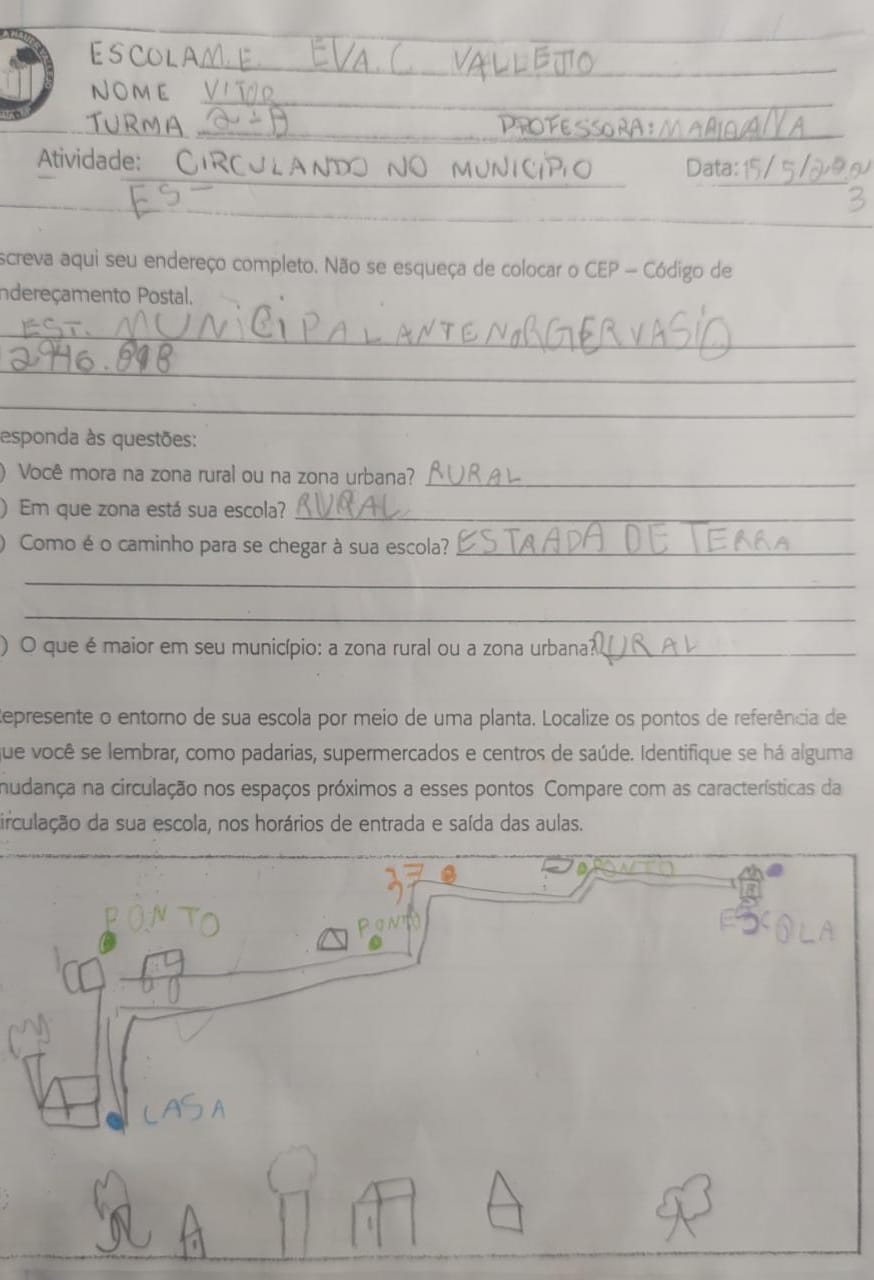 ESCOLA M.E. EVA C VALLEJO
NOME VITOR
TURMA 2º A PROFESSORA: MARIOANA
Atividade: CIRCULANDO NO MUNICÍPIO Data: 15/5/202
ES 3
screva aqui seu endereço completo. Não se esqueça de colocar o CEP – Código de
ndereçamento Postal.
EST. MUNICIPAL ANTENOR GERVASIO
esponda às questões:
) Você mora na zona rural ou na zona urbana? RURAL
) Em que zona está sua escola? RURAL
) Como é o caminho para se chegar à sua escola? ESTRADA DE TERRA
) O que é maior em seu município: a zona rural ou a zona urbana? RURAL
epresente o entorno de sua escola por meio de uma planta. Localize os pontos de referência de
ue você se lembrar, como padarias, supermercados e centros de saúde. Identifique se há alguma
mudança na circulação nos espaços próximos a esses pontos Compare com as características da
irculação da sua escola, nos horários de entrada e saída das aulas.
37 PONTO
PONTO PONTO ESCOLA
CASA